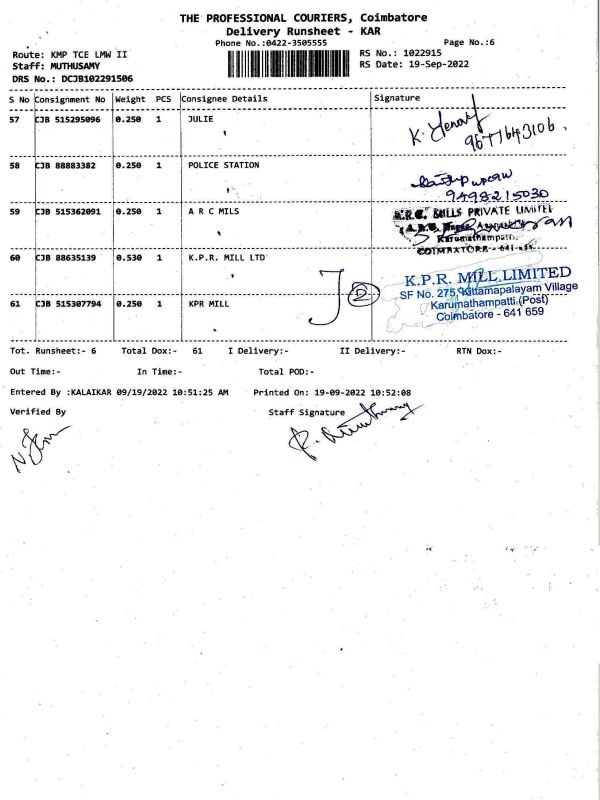 THE PROFESSIONAL COURIERS, Coimbatore
Delivery Runsheet - KAR
Phone No.:0422-3505555 Page No.:6
Route: KMP TCE LMW II RS No.: 1022915
Staff: MUTHUSAMY RS Date: 19-Sep-2022
DRS No.: DCJB102291506
S No Consignment No Weight PCS Consignee Details Signature
57 CJB 515295096 0.250 1 JULIE
9677643106
58 CJB 88883382 0.250 1 POLICE STATION
9498215030
59 CJB 515362091 0.250 1 A R C MILS
A.R.C. MILLS PRIVATE LIMITED
Karumathampatti,
COIMBATORE - 641 659
60 CJB 88635139 0.530 1 K.P.R. MILL LTD
K.P.R. MILL LIMITED
SF No. 275, Kittamapalayam Village
Karumathampatti (Post)
Coimbatore - 641 659
61 CJB 515307794 0.250 1 KPR MILL
2
Tot. Runsheet:- 6 Total Dox:- 61 I Delivery:- II Delivery:- RTN Dox:-
Out Time:- In Time:- Total POD:-
Entered By :KALAIKAR 09/19/2022 10:51:25 AM Printed On: 19-09-2022 10:52:08
Verified By Staff Signature